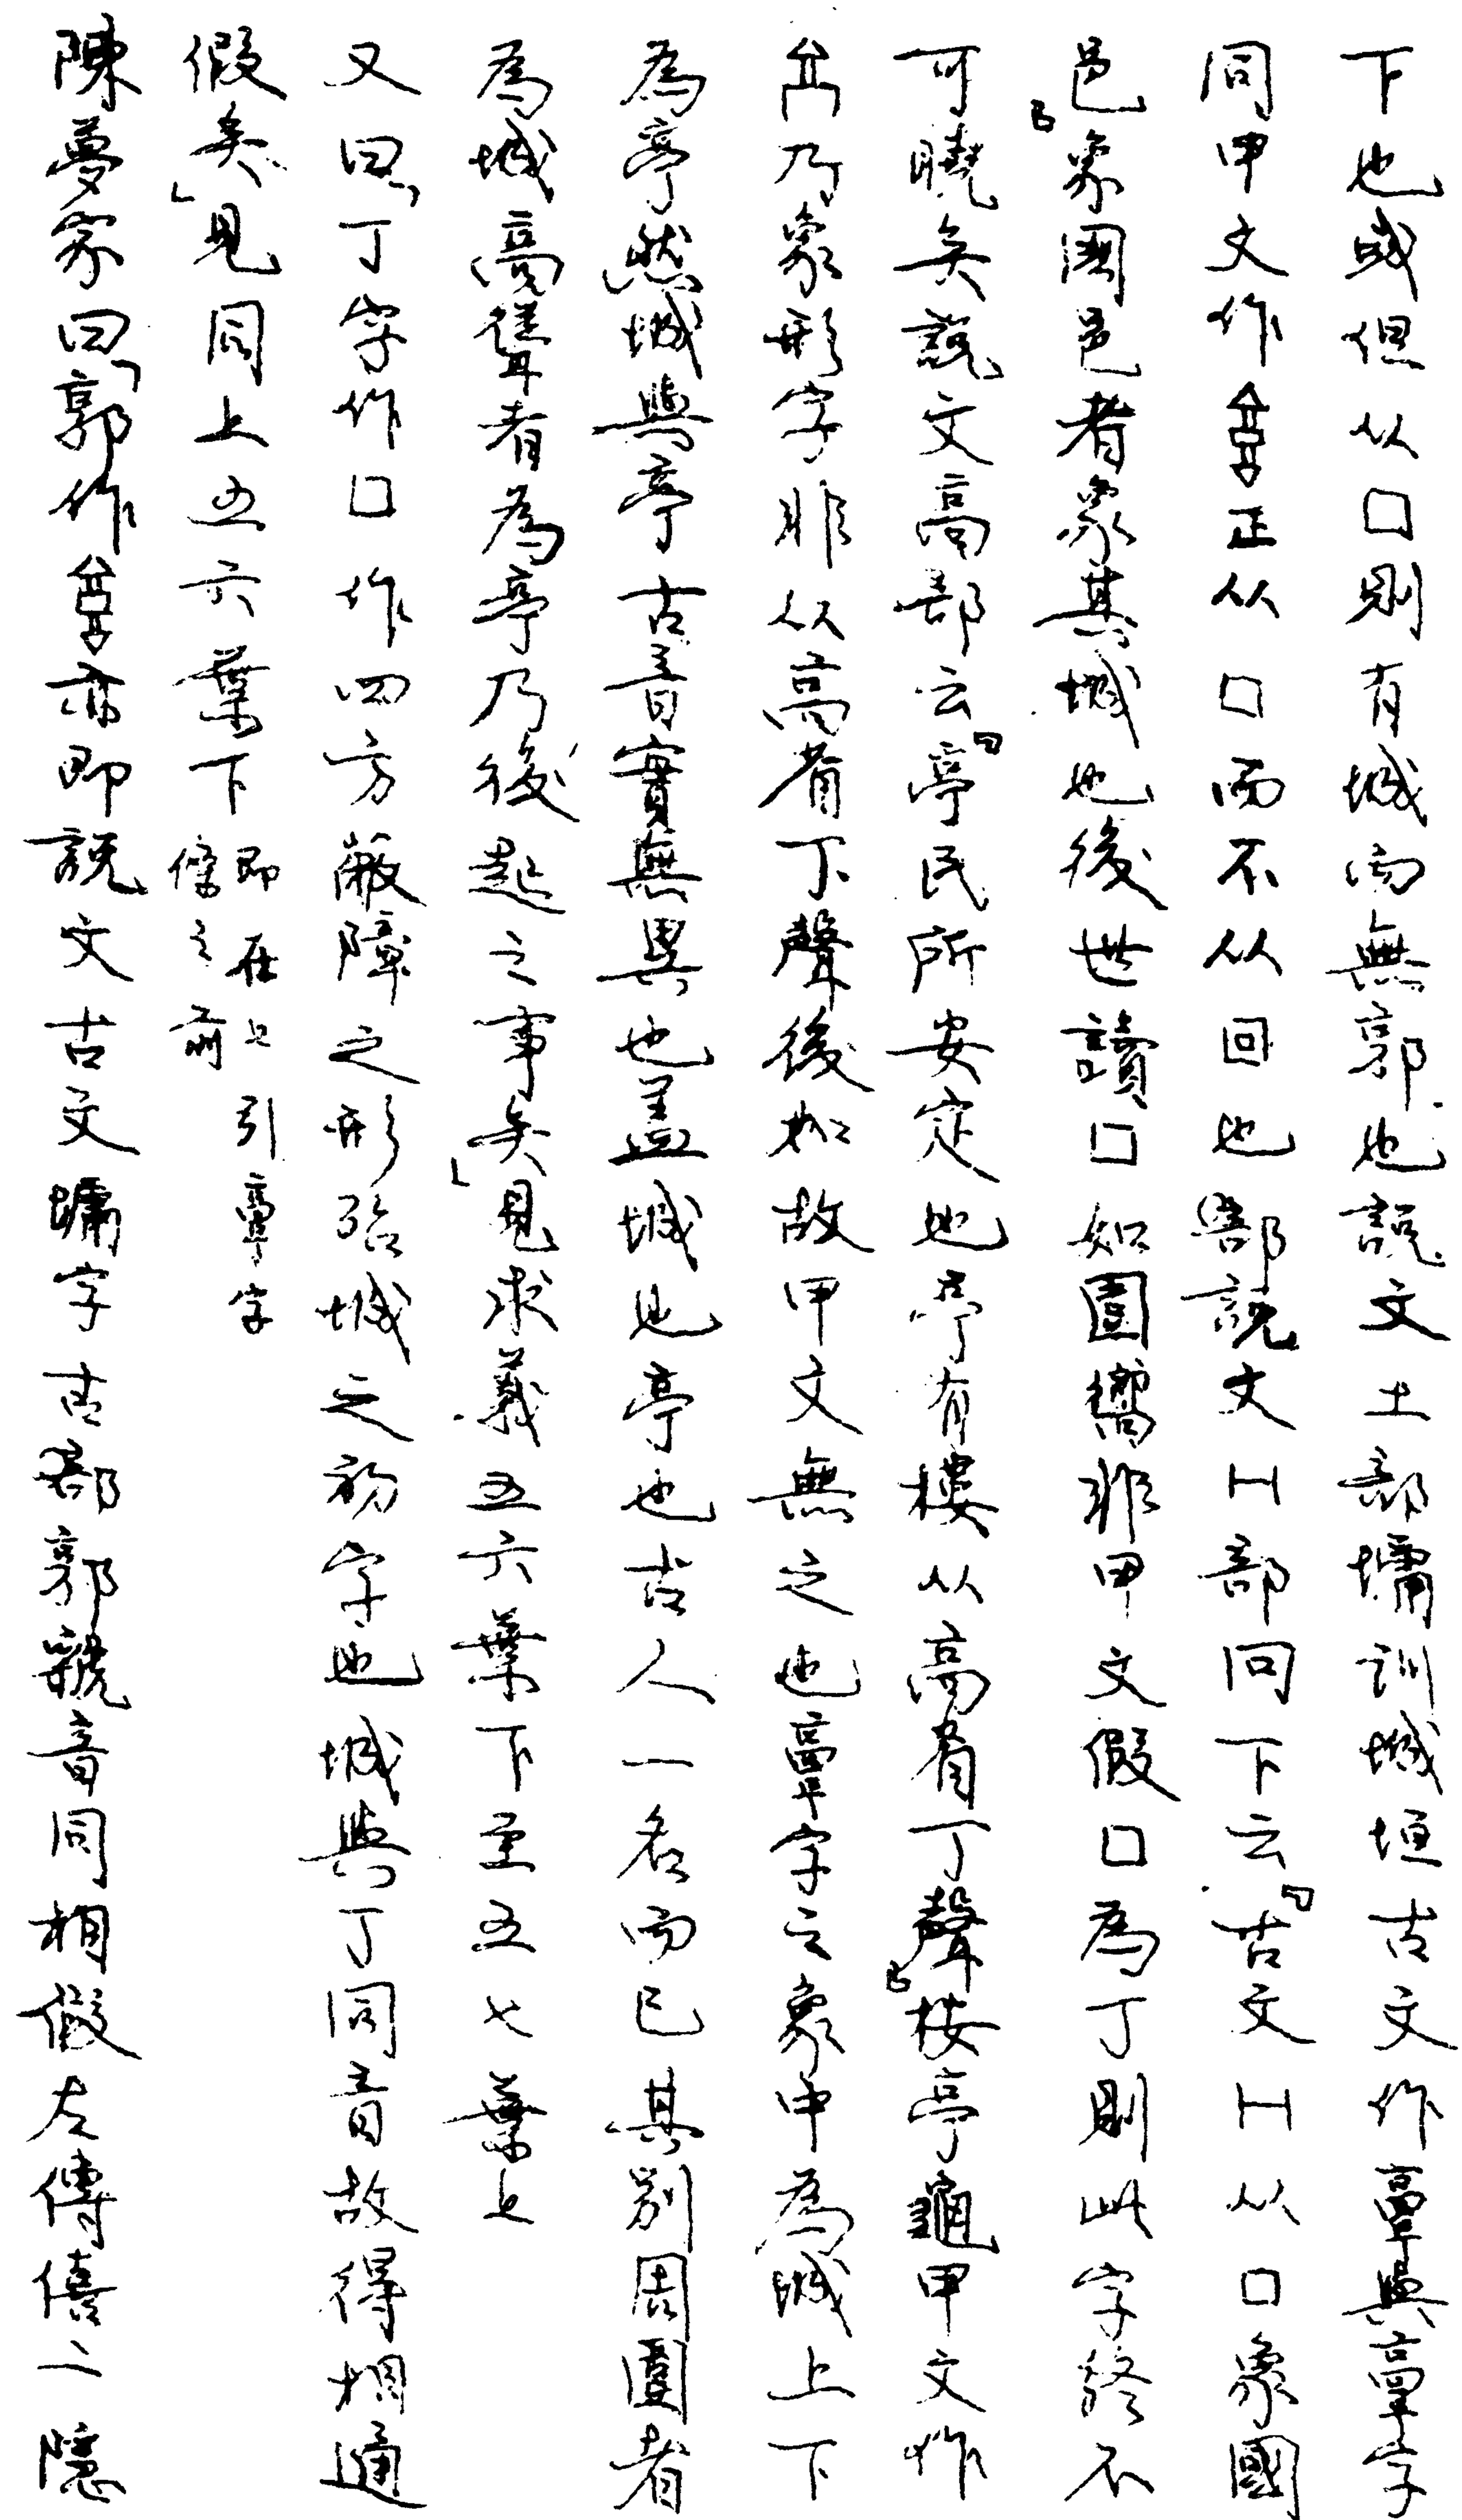 下也或但从囗則有城而無郭也說文土部墉訓城垣古文作𩫖與𩫏字
同甲文作正从囗而不从回也鄙說文冂部冋下云『古文冂从囗象國
邑』象國邑者象其城也後世讀囗如圍嚮非甲文假囗為丁則此字終不
可曉矣說文高部云『亭民所安定也亭有樓从高省丁聲』按亭龜甲文作
乃象形字非从高省丁聲後加故甲文無之也𩫏字之象中為城上下
為亭然城與亭古音實無異也蓋城也亭也古人一名而已其別周圍者
為城高聳者為亭乃後起之事矣」見求義五六葉下至五七葉上
又曰「丁字作囗作四方蔽障之形殆城之初字也城與丁同音故得相通
假矣」見同上五六葉下即在上引𩫏字條之前
陳夢家曰「郭作亦即說文古文墉字古鄙郭虢音同相假左傳僖二隱